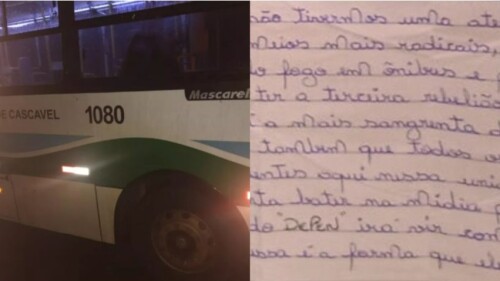 Mascarel
DE CASCAVEL 1080
não tivermos uma ate
meios mais radicais,
o fogo em ônibus e
ter a terceira rebelião
a mais sangrenta
tambem que todos
ntes aqui nessa uni
ta bater na mídia
do "DEPEN" irá vir com
ssa é a forma que ele